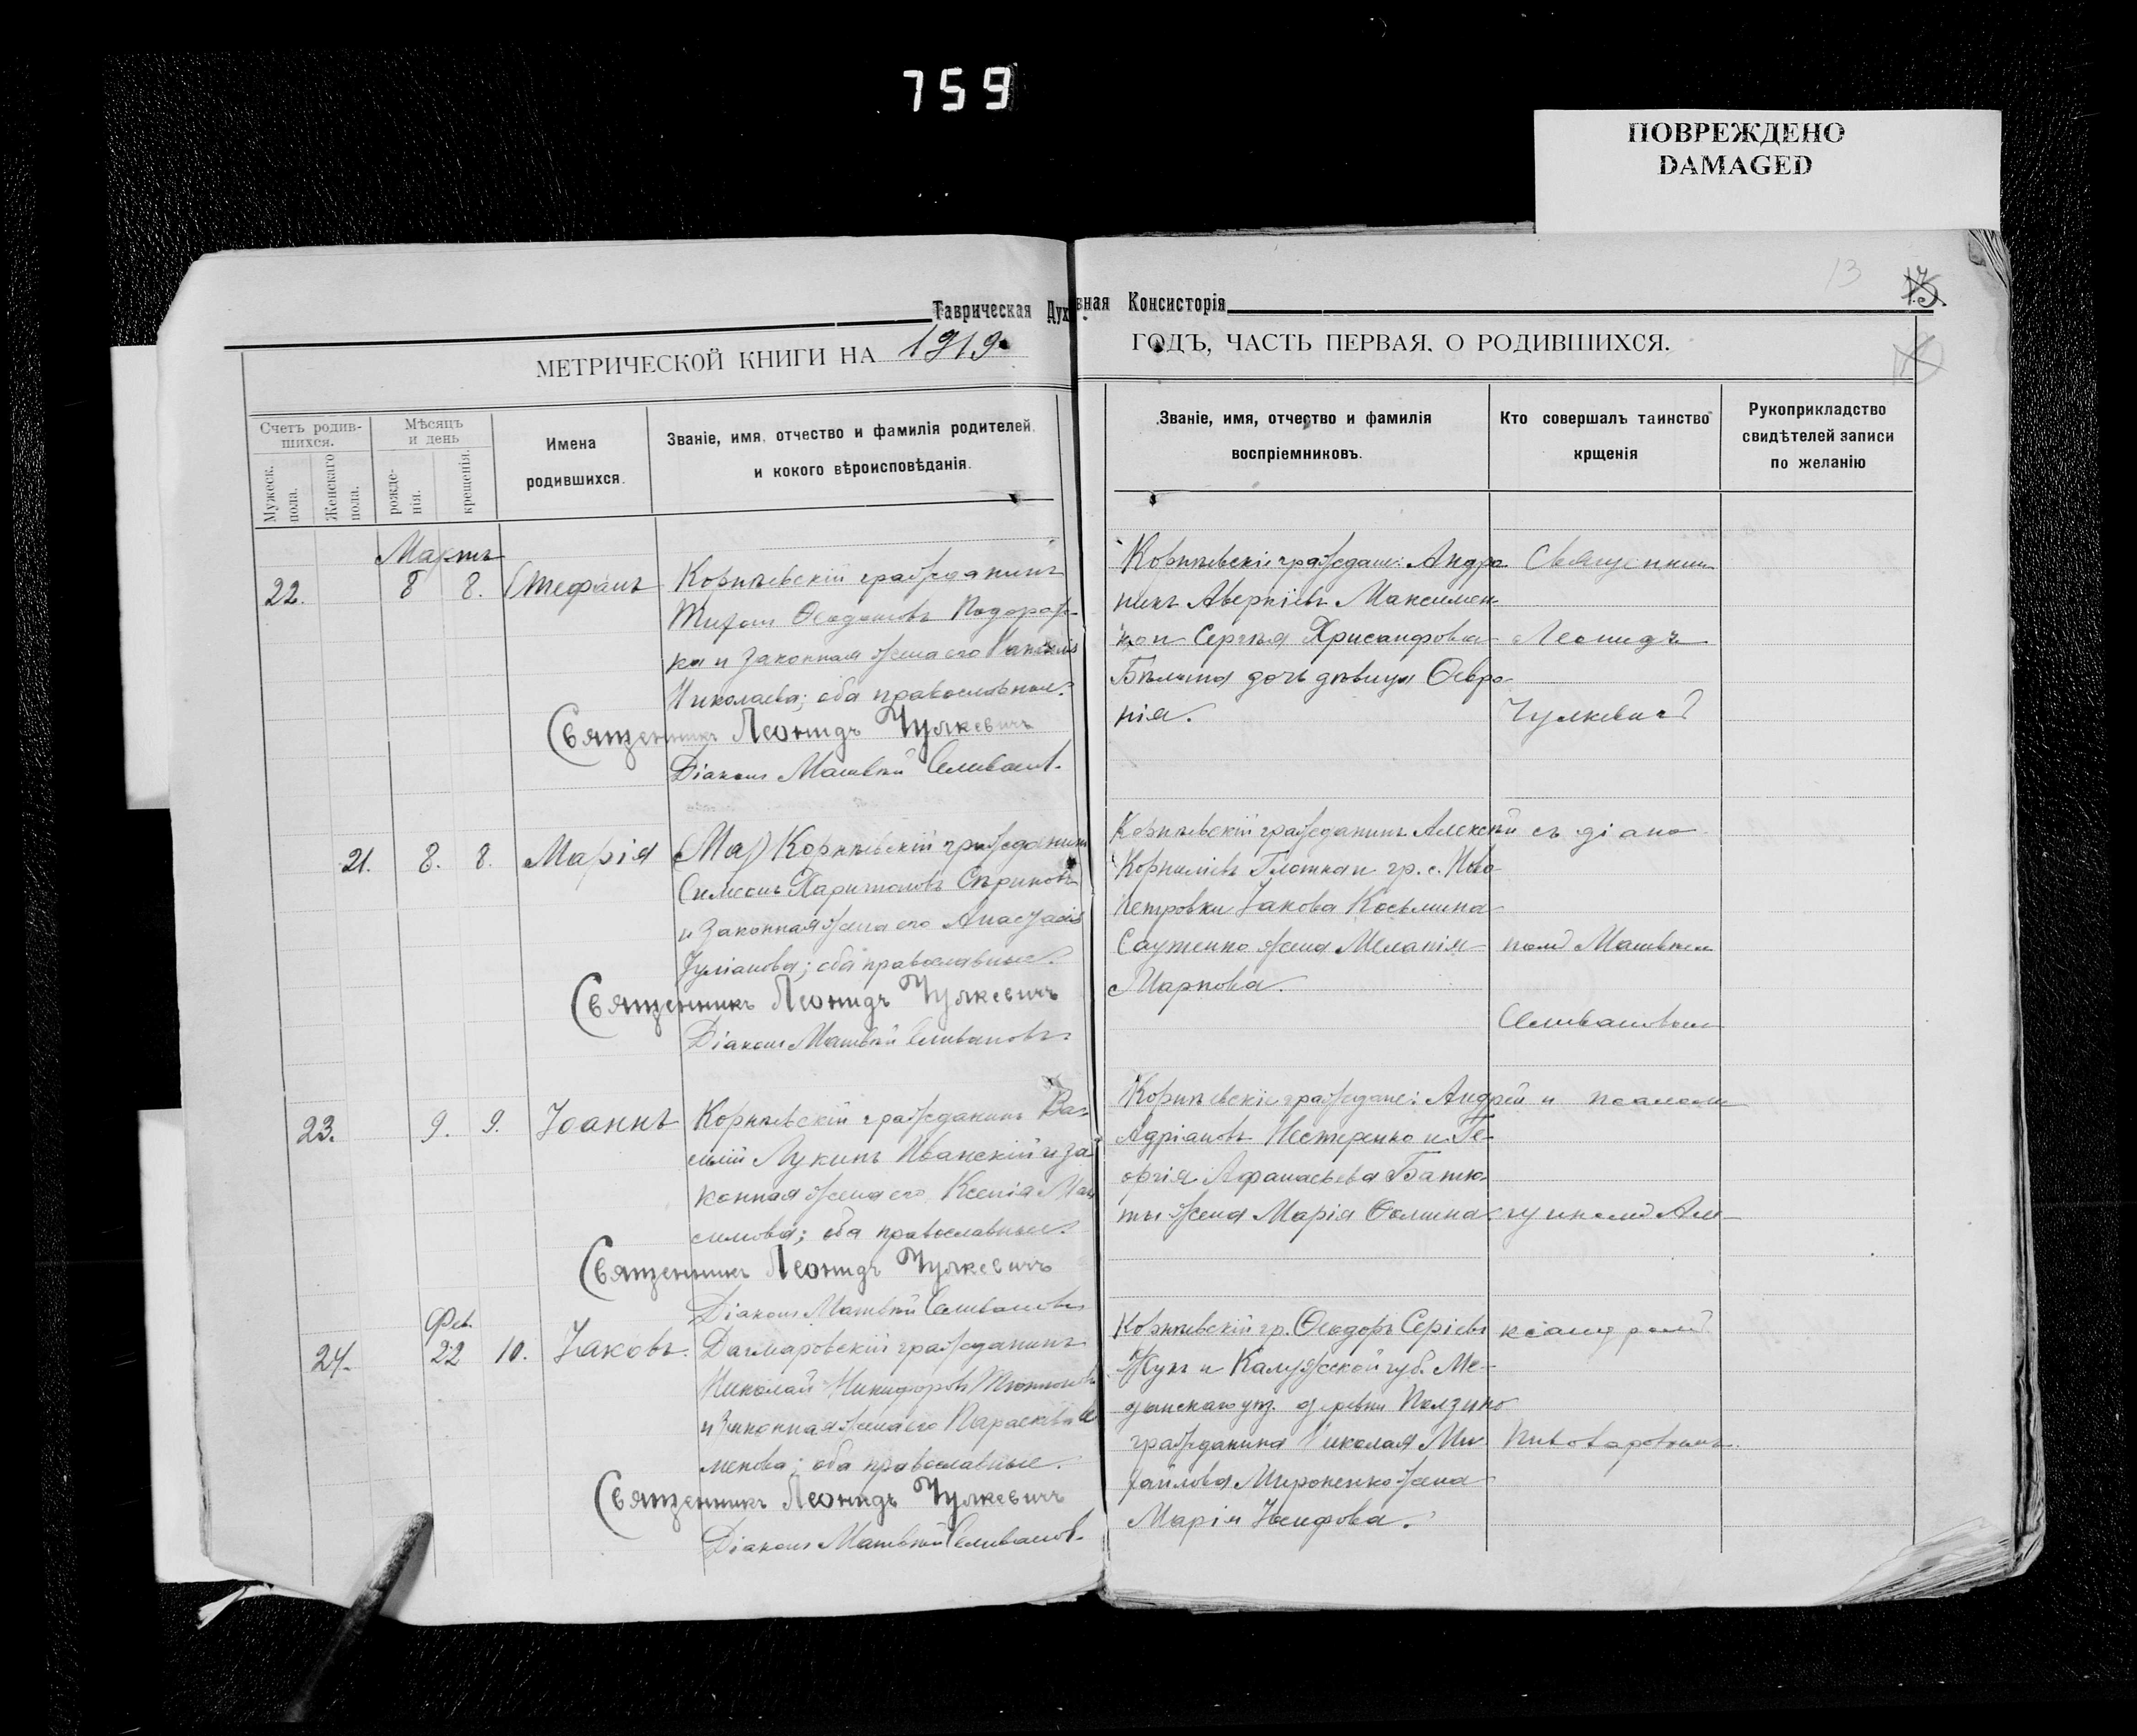 759
ПОВРЕЖДЕНО
DAMAGED
13
Таврическая Духовная Консисторія
МЕТРИЧЕСКОЙ КНИГИ НА 1919 ГОДЪ, ЧАСТЬ ПЕРВАЯ, О РОДИВШИХСЯ.
Счетъ родив-
шихся.
Мужеск.
пола.
Женскаго
пола.
Мѣсяцъ
и день
рожде-
нія.
крещенія.
Имена
родившихся.
Званіе, имя, отчество и фамилія родителей,
и кокого вѣроисповѣданія.
Званіе, имя, отчество и фамилія
воспріемниковъ.
Кто совершалъ таинство
крщенія
Рукоприкладство
свидѣтелей записи
по желанію
Мартъ
22. 8 8. Стефанъ
Корнѣевскій гражданинъ
Ѳеодотовъ
ка и законная жена его
Николаева; оба православные.
Священникъ Леонидъ Чулкевичъ
Діаконъ Матвѣй Селивановъ.
Корнѣевскіе граждане: Андро-
никъ Аверкіевъ Максимен-
ко и Сергѣя Хрисанфова
дочь дѣвица Февро-
нія.
Священник
Леонидъ
Чулкевич
21. 8. 8. Марія
Корнѣевскій гражданинъ
Симеонъ Харитоновъ
и законная жена его
Іуліанова; оба православные.
Священникъ Леонидъ Чулкевичъ
Діаконъ Матвѣй Селивановъ.
Корнѣевскій гражданинъ Алексѣй
Корниліевъ и гр. с. Ново
петровки Іакова Косьмина
жена Меланія
Маркова.
съ діако
ном Матвѣем
Селивановым
23. 9. 9. Іоаннъ
Корнѣевскій гражданинъ Ва-
силій Лукинъ Иванскій и за
конная жена его Ксенія Мак
симова; оба православные.
Священникъ Леонидъ Чулкевичъ
Діаконъ Матвѣй Селивановъ
Корнѣевскіе граждане: Андрей
Адріановъ Нестеренко и Ге-
оргія Аѳанасьева Батю
ты жена Марія Ѳомина.
и псалом
щиком Але
Фев.
24. 22 10. Іаковъ.
гражданинъ
Николай Никифоровъ
и законная жена его Параскева
оба православные.
Священникъ Леонидъ Чулкевичъ
Діаконъ Матвѣй Селиванов.
Корнѣевскій гр. Ѳеодоръ
Жукъ и Калужской губ. Ме-
дынскаго уѣз. деревни
гражданина Николая Ми
хайлова Мироненко жена
Марія
ксандром
Пивоваровым.